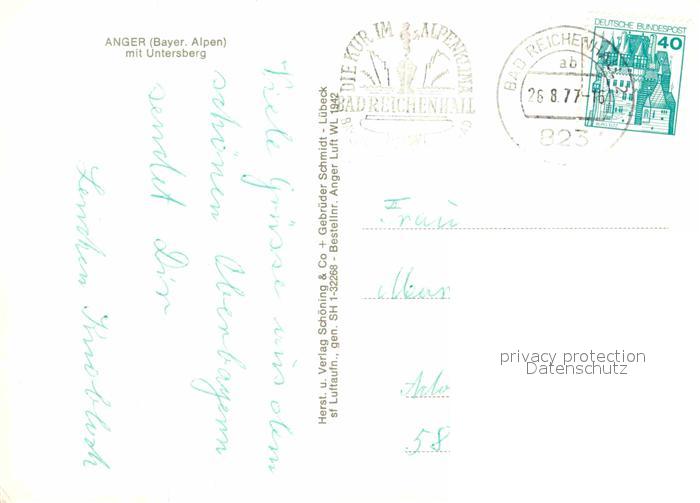 ANGER (Bayer. Alpen)
mit Untersberg
Viele Grüsse aus dem
schönen Oberbayern
sendet Dir
Lenchen Knoblich
Herst. u. Verlag Schöning & Co + Gebrüder Schmidt - Lübeck
sf Luftaufn., gen. SH 1-32268 - Bestellnr. Anger Luft WL 1942
DIE KUR IM ALPENKLIMA
BAD REICHENHALL
BAD REICHENHALL
ab
26.8.77-16
823
DEUTSCHE BUNDESPOST
40
Frau
privacy protection
Datenschutz
58